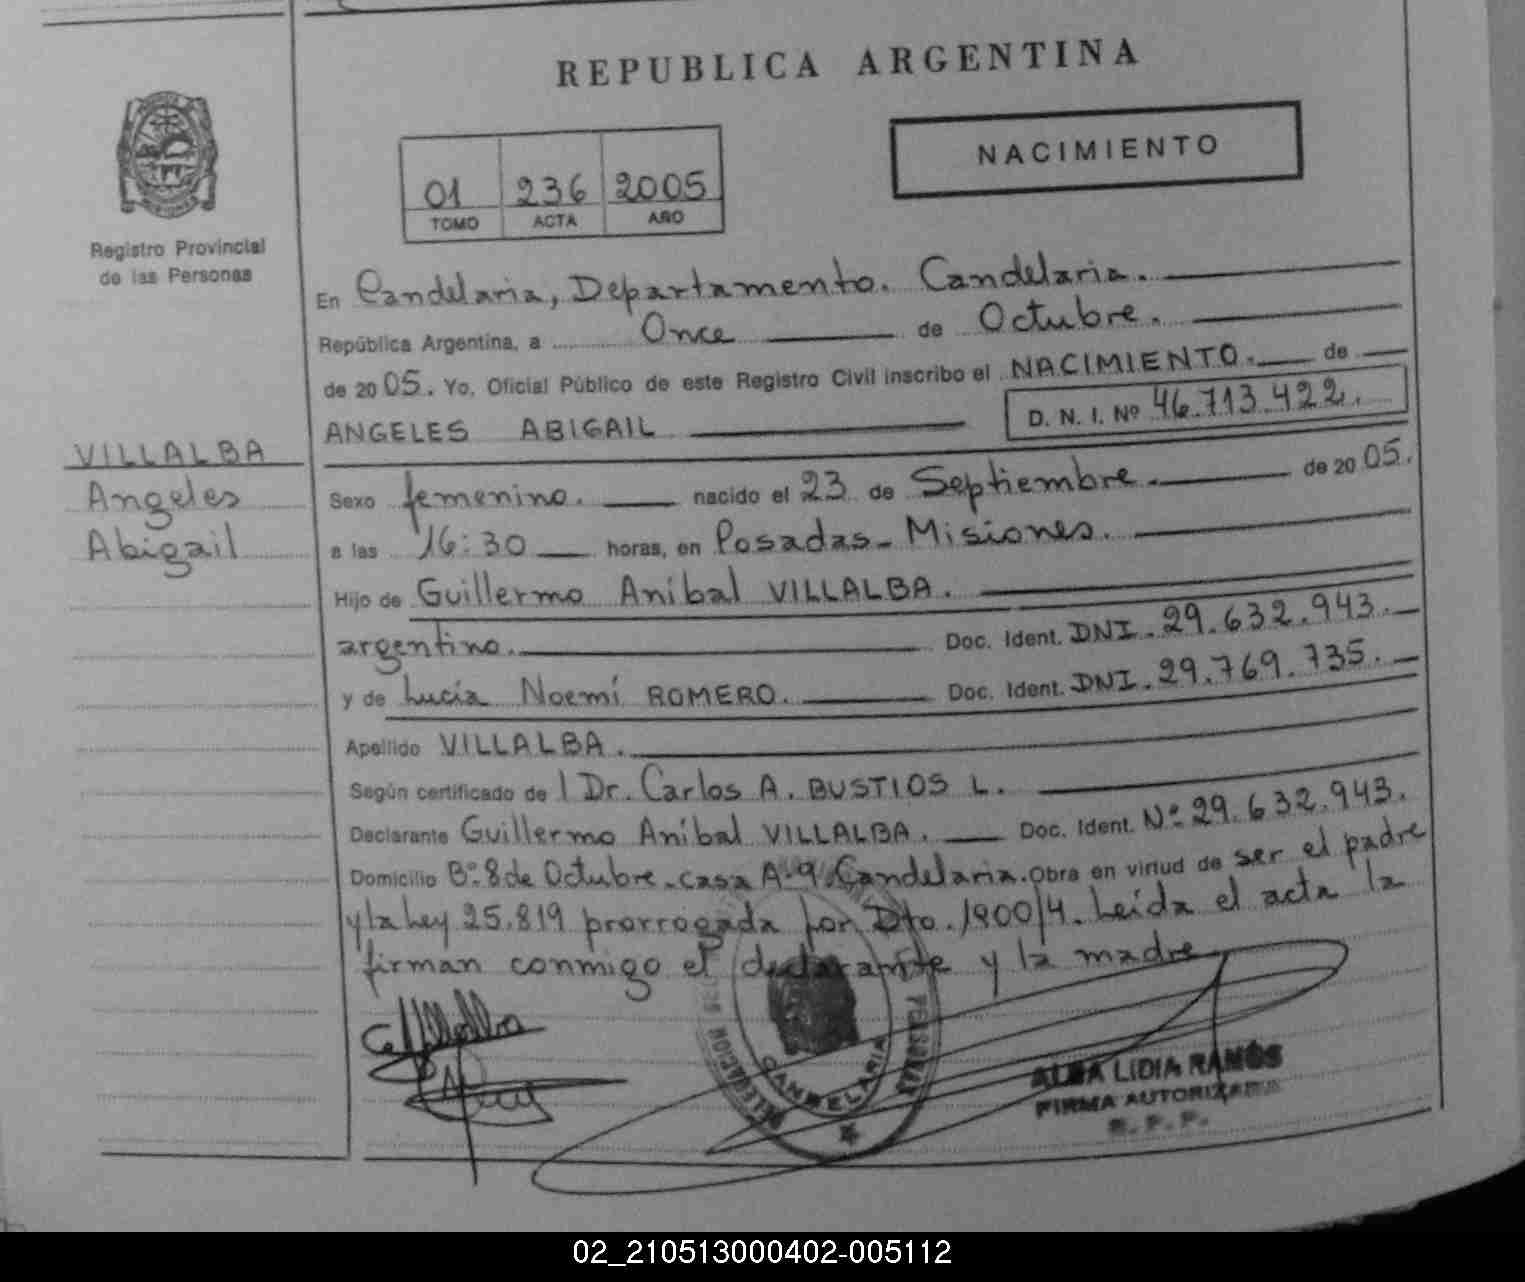 REPUBLICA ARGENTINA
NACIMIENTO
01 236 2005
TOMO ACTA AÑO
Registro Provincial
de las Personas
En Candelaria, Departamento. Candelaria.
República Argentina, a Once de Octubre.
de 2005. Yo, Oficial Público de este Registro Civil inscribo el NACIMIENTO. de
ANGELES ABIGAIL D. N. I. Nº 46.713.422.
VILLALBA
Angeles
Abigail
Sexo femenino. nacido el 23 de Septiembre. de 2005.
a las 16:30 horas, en Posadas - Misiones.
Hijo de Guillermo Aníbal VILLALBA.
argentino. Doc. Ident. DNI. 29.632.943.
y de Lucía Noemí ROMERO. Doc. Ident. DNI. 29.769.735.
Apellido VILLALBA.
Según certificado del Dr. Carlos A. BUSTIOS L.
Declarante Guillermo Aníbal VILLALBA. Doc. Ident. Nº 29.632.943.
Domicilio Bº 8 de Octubre. casa A-9. Candelaria. Obra en virtud de ser el padre
y la Ley 25.819 prorrogada por Dto. 1900/4. Leída el acta la
firman conmigo el declarante y la madre
DELEGACION PERSONAS
CANDELARIA
ALBA LIDIA RAMOS
FIRMA AUTORIZADA
R. P. P.
02_210513000402-005112